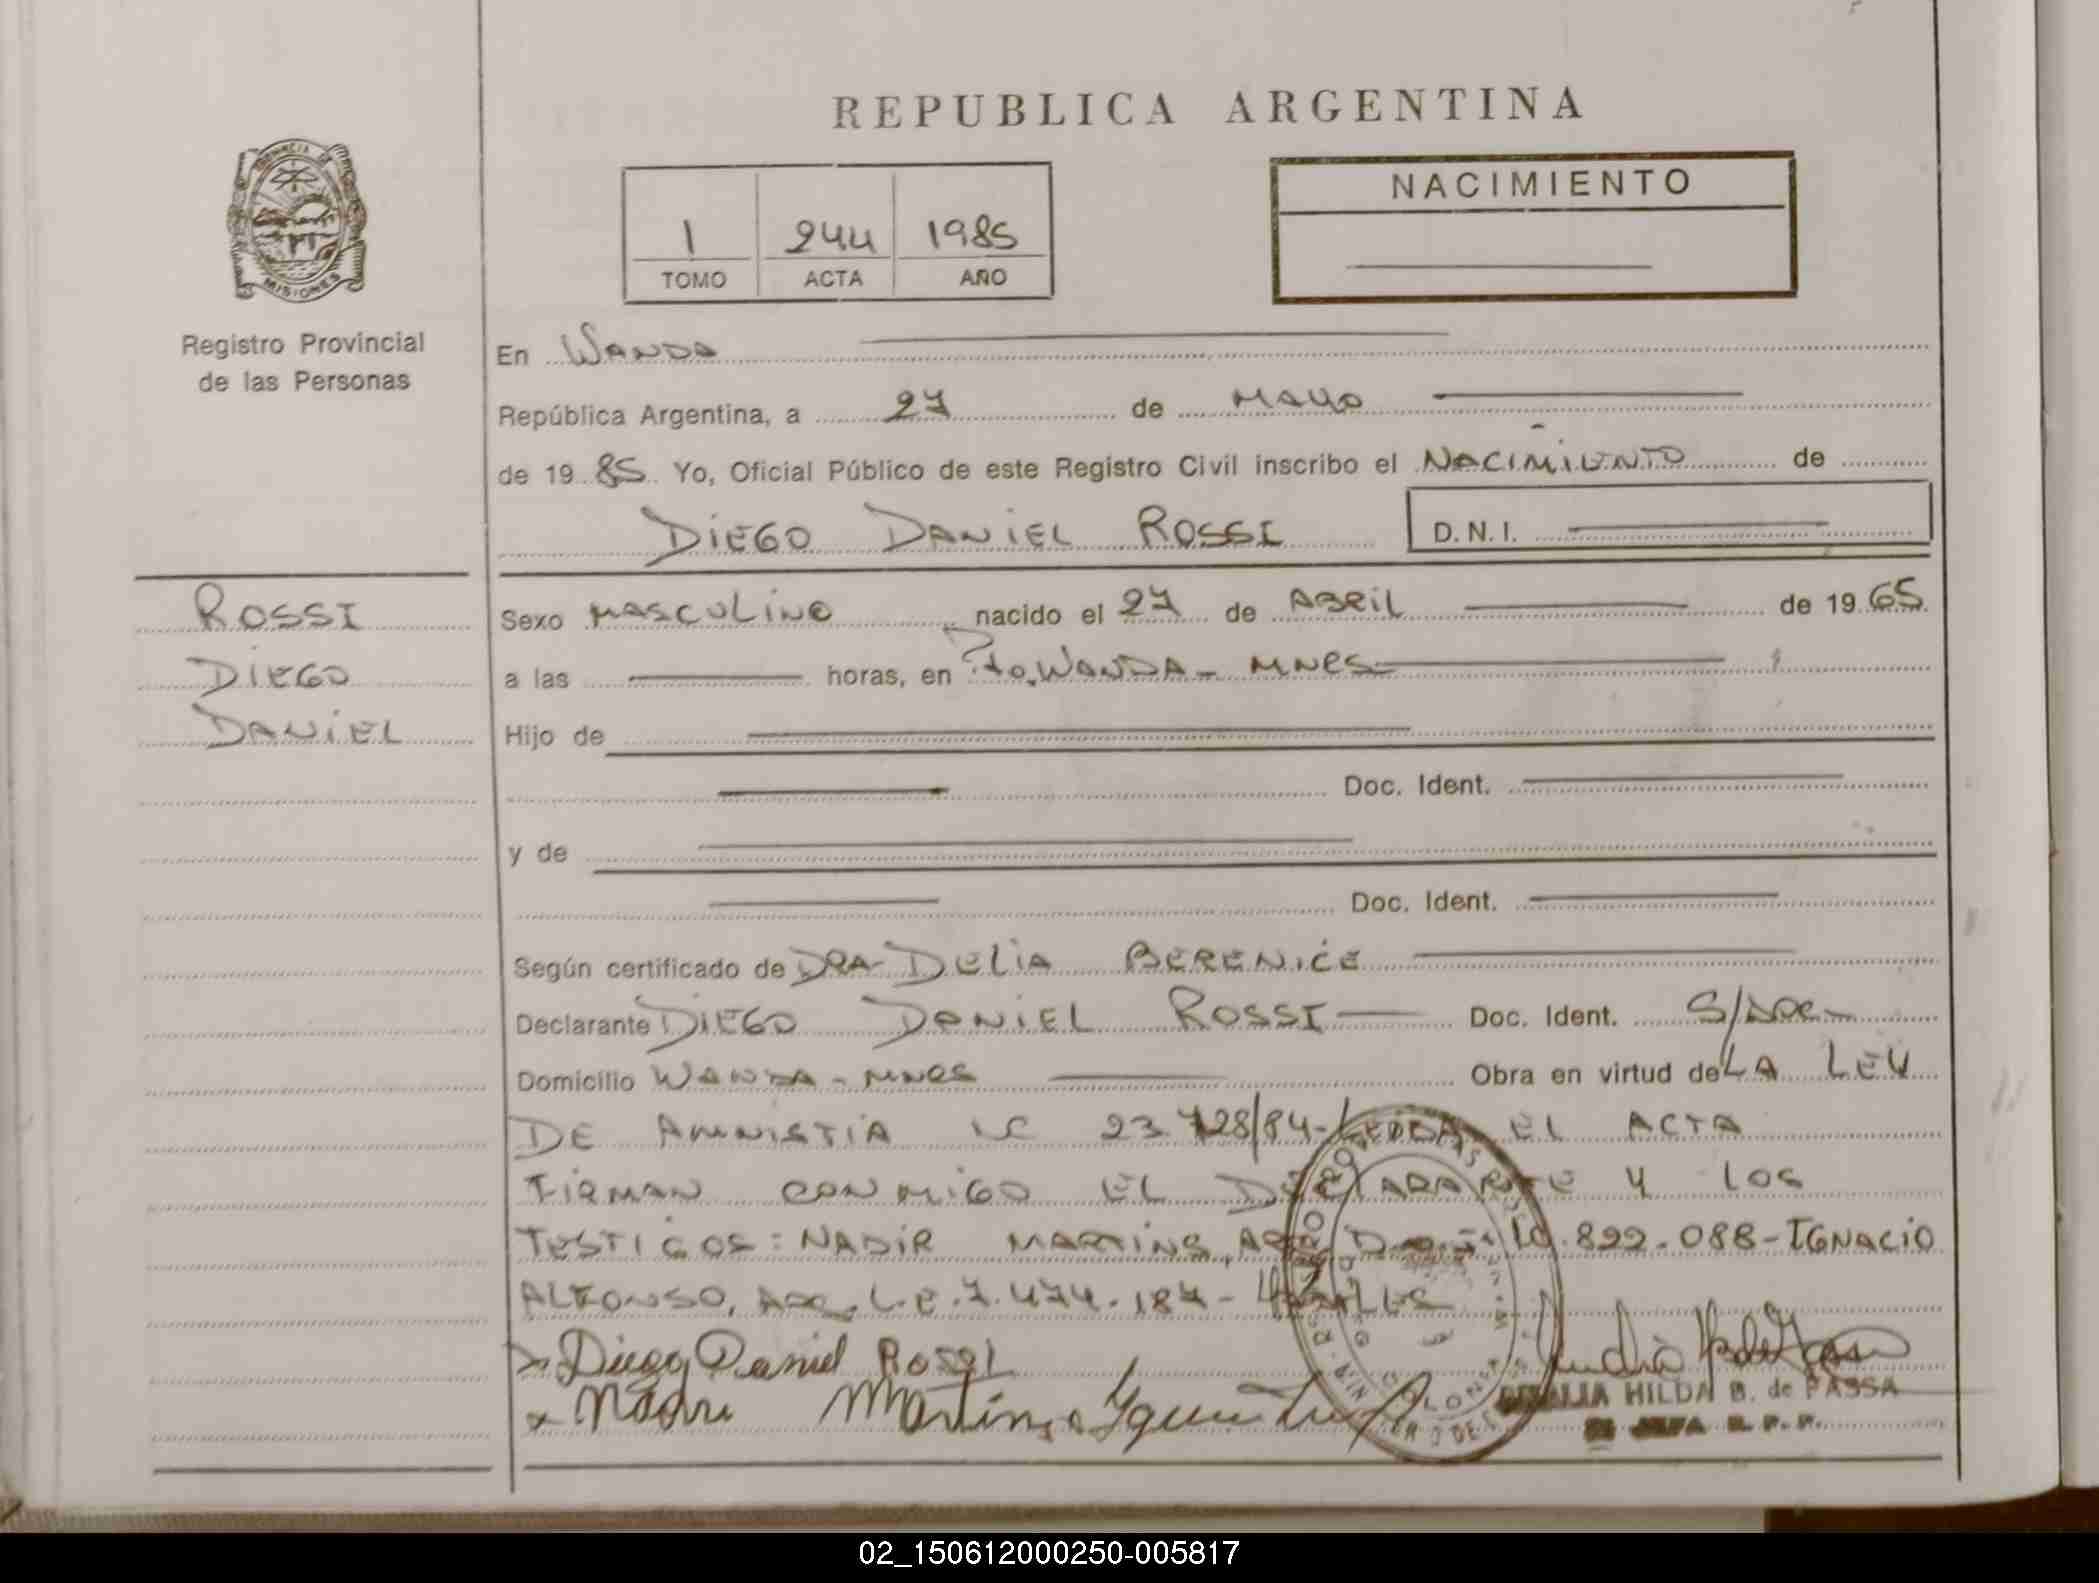 REPUBLICA ARGENTINA
PROVINCIA DE MISIONES
Registro Provincial
de las Personas
1 244 1985
TOMO ACTA AÑO
NACIMIENTO
En WANDA
República Argentina, a 27 de MAYO
de 19 85 Yo, Oficial Público de este Registro Civil inscribo el NACIMIENTO de
DIEGO DANIEL ROSSI D.N.I.
ROSSI
DIEGO
DANIEL
Sexo MASCULINO nacido el 27 de ABRIL de 19 65
a las horas, en Pto. WANDA - MNES
Hijo de
Doc. Ident.
y de
Doc. Ident.
Según certificado de DRA. DELIA BERENICE
Declarante DIEGO DANIEL ROSSI Doc. Ident. S/DOC-
Domicilio WANDA - MNES Obra en virtud de LA LEY
DE AMNISTIA 23.128/84- LEIDA EL ACTA
FIRMAN CONMIGO EL DECLARANTE Y LOS
TESTIGOS: NADIR MARTINS, ARG. 10.899.088-IGNACIO
ALFONSO, ARG. L.E. 7.474.187-
Diego Daniel ROSSI
Nadir Martins
HILDA B. de PASSA
JEFA R. P. P.
02_150612000250-005817